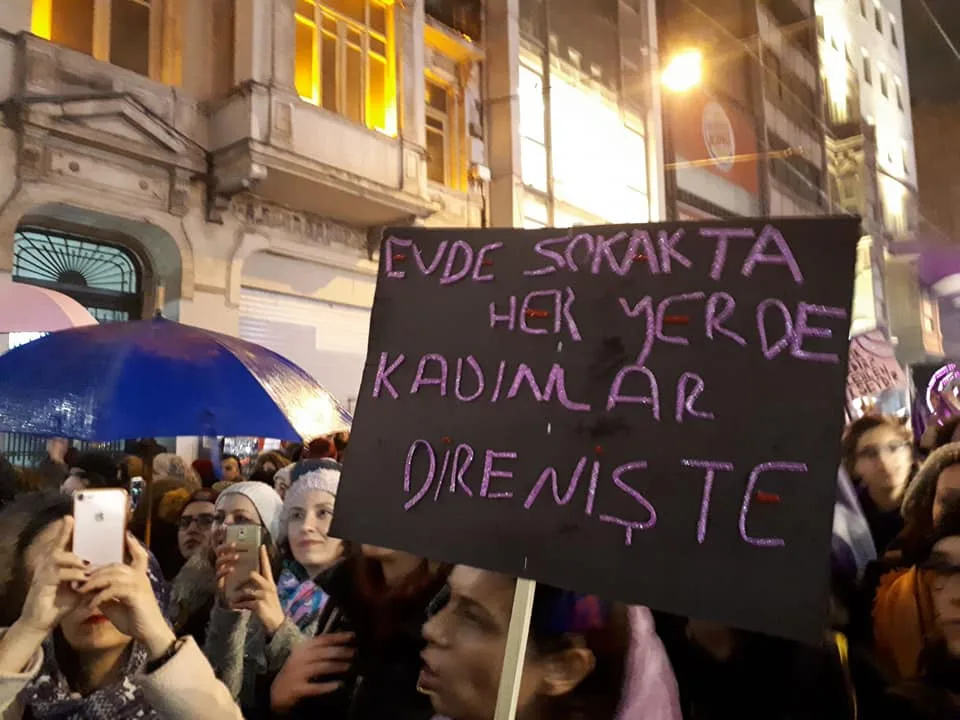 EVDE SOKAKTA
HER YERDE
KADINLAR
DİRENİŞTE